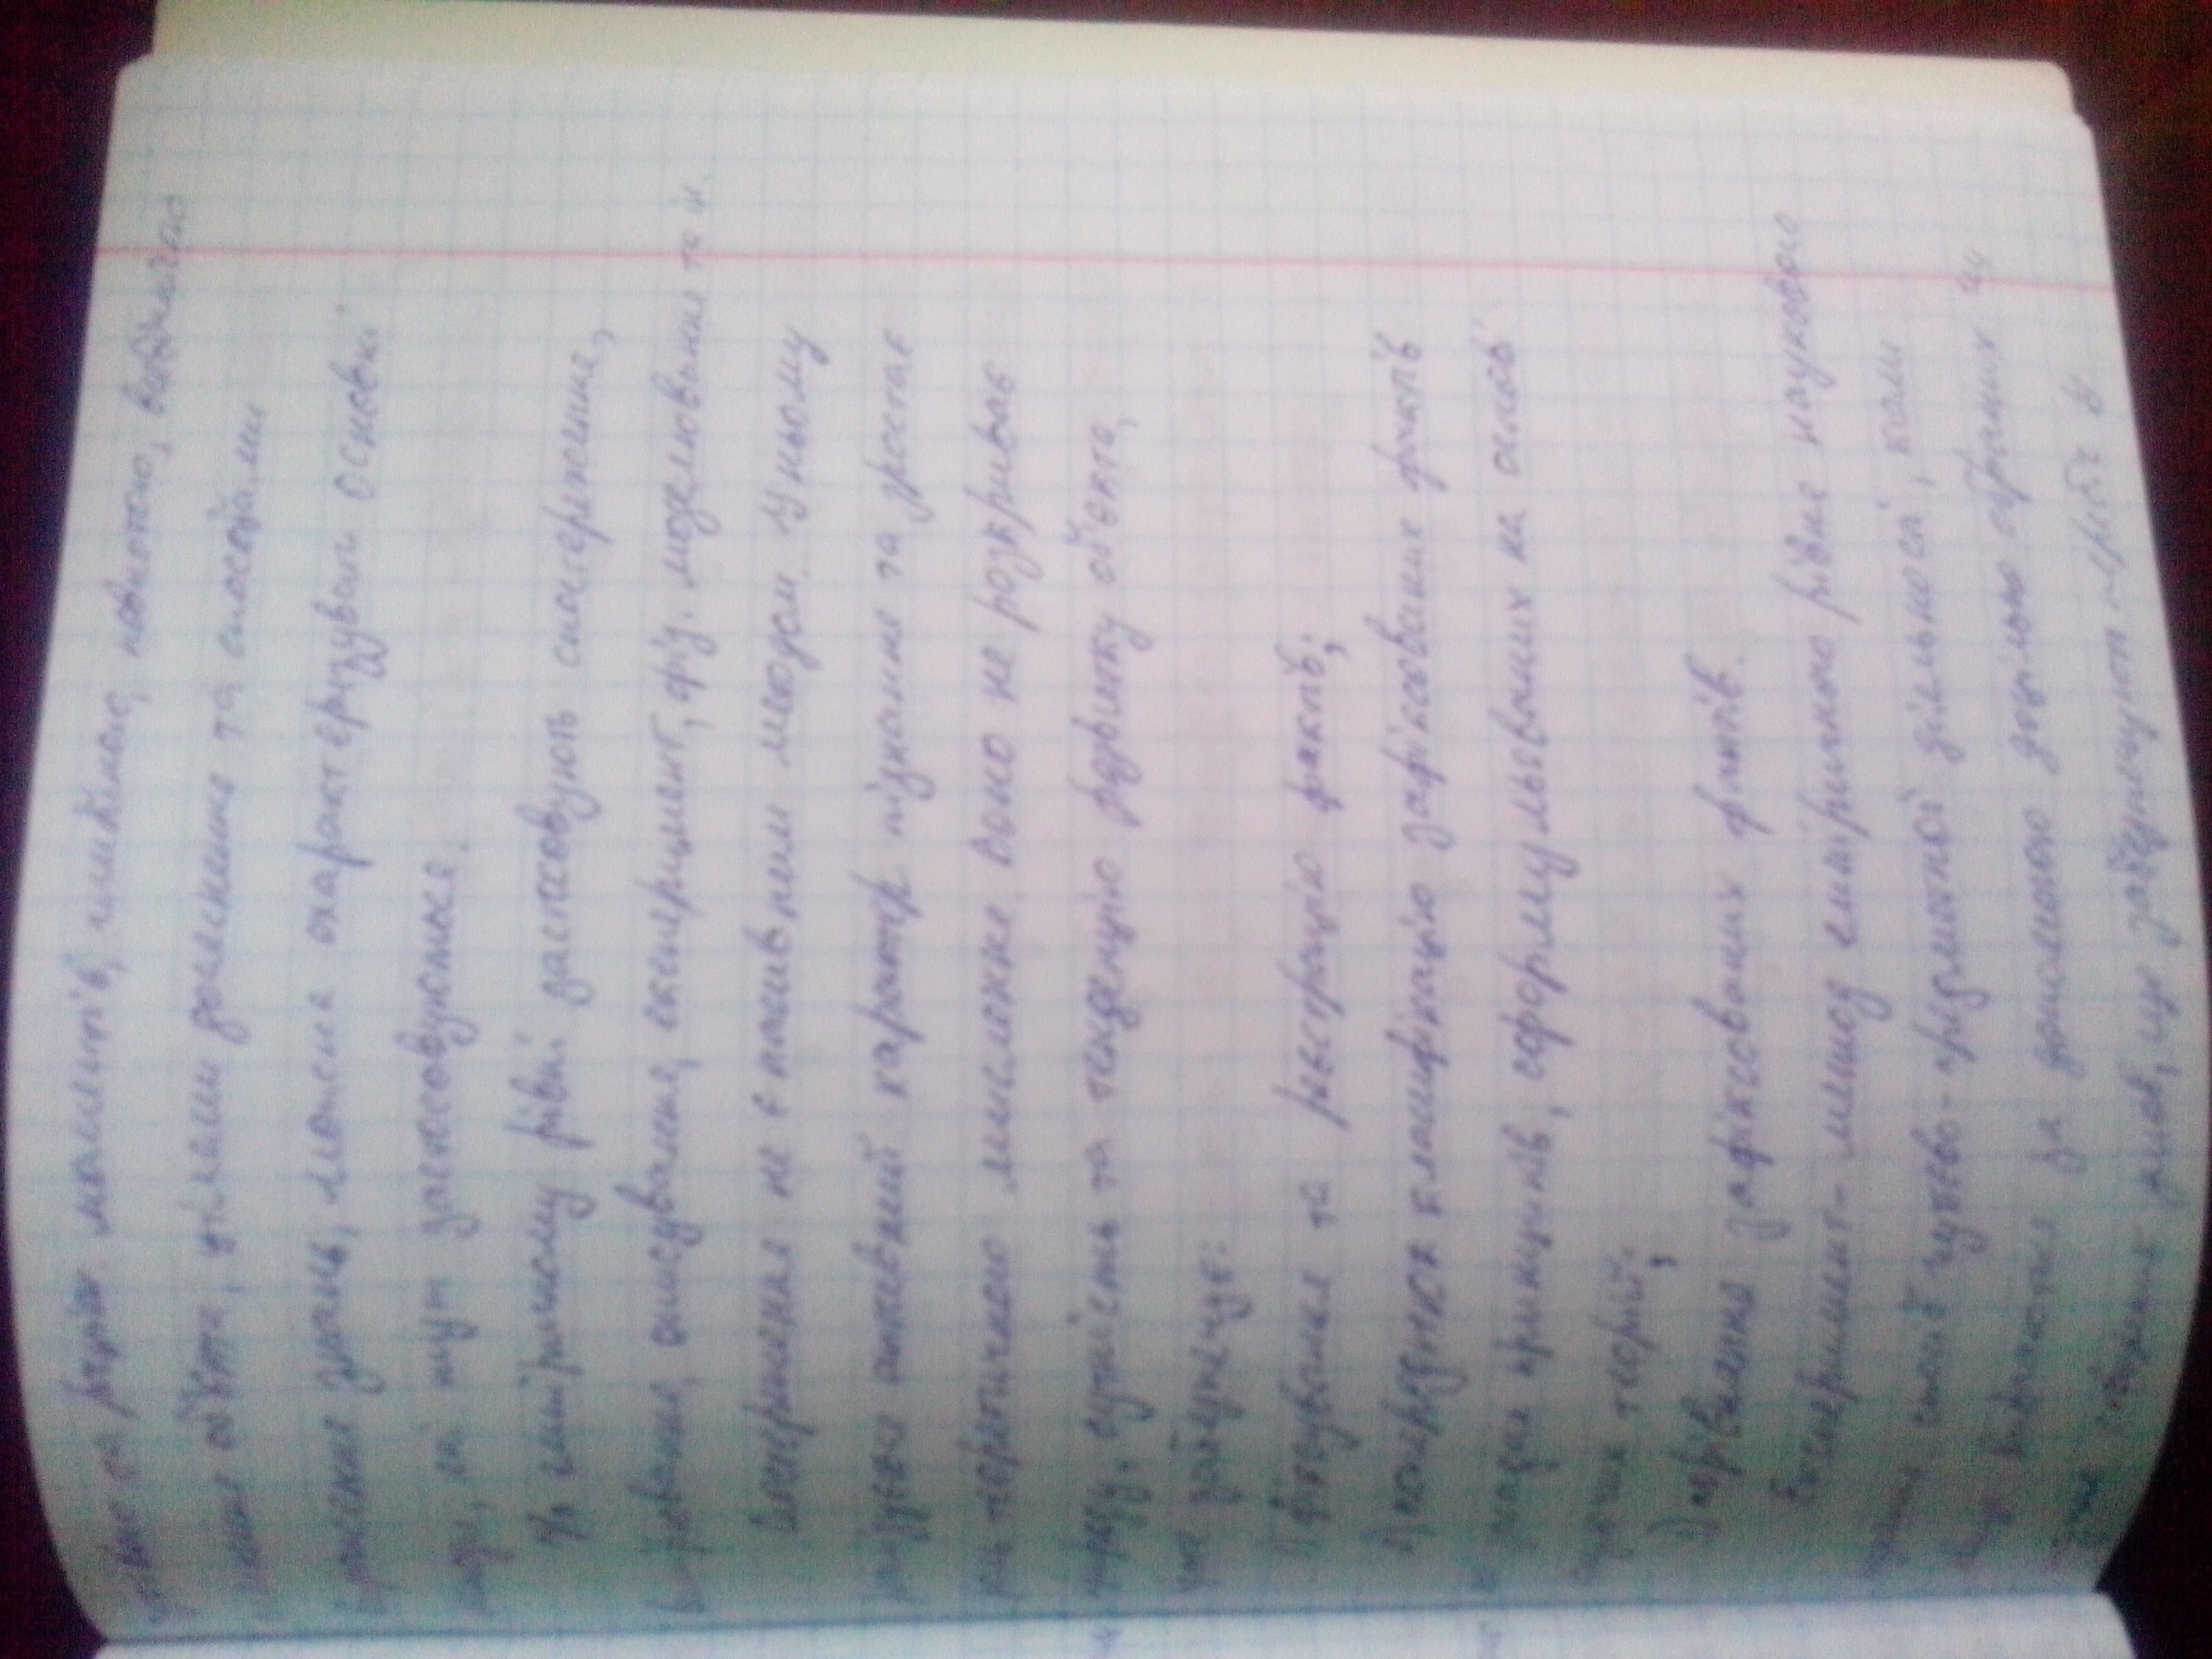 та моментів, глибиною, повнотою, всебічністю
об'єкта, цілями досягнення та способами
знань, можна охарактеризувати основні
які тут застосовуються.
На емпіричному рівні застосовують спостереження,
вимірювання, описування, експеримент, фіз. моделювання та ін.
Спостереження не є пасивним методом. У ньому
активний характер пізнання та зростає
теоретичного мислення. Воно не розкриває
природу, сутність та тенденцію розвитку об'єкта,
забезпечує:
1) фіксування та реєстрацію фактів;
2) попередню класифікацію зафіксованих фактів
на принципів, сформульованих на основі
існуючих теорій;
3) порівняння зафіксованих фактів.
Експеримент - метод емпіричного рівня наукового
пізнання, спосіб чуттєво-предметної діяльності, коли
за допомогою доцільно обраних чи
умов, що забезпечують перебіг